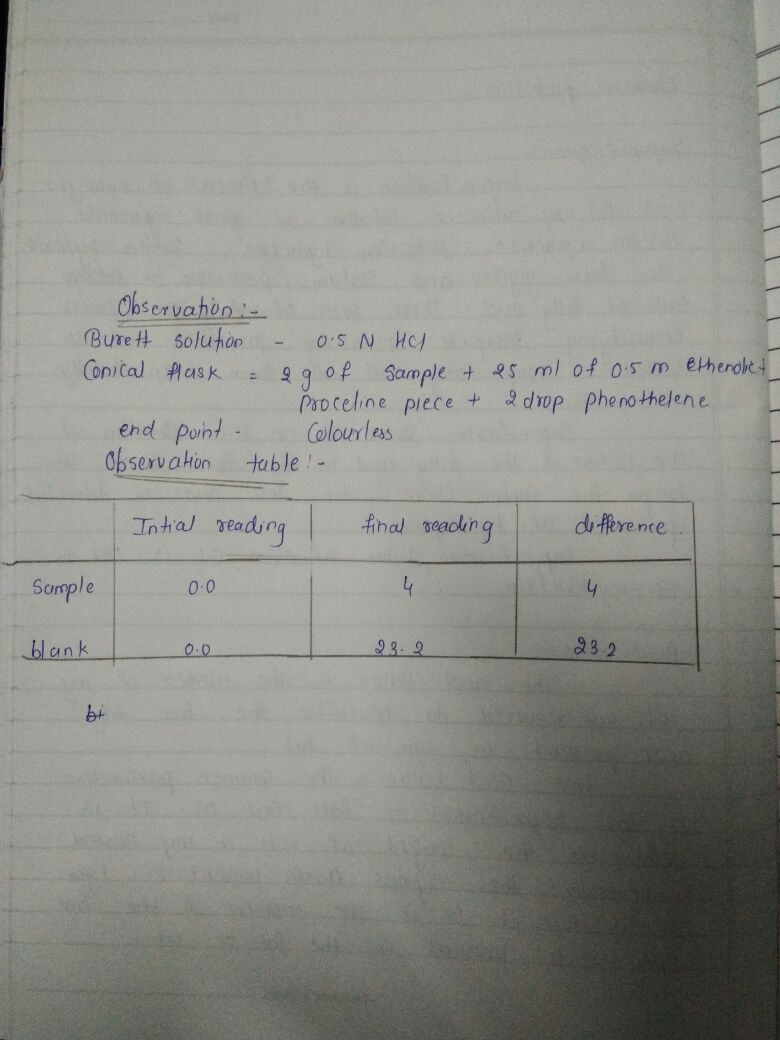 Observation :-
Burett solution - 0.5 N HCl
Conical flask = 2 g of sample + 25 ml of 0.5 m Ethenolic +
Proceline piece + 2 drop phenothelene
end point - Colourless
Observation table :-
Intial reading final reading difference
Sample 0.0 4 4
blank 0.0 23.2 23.2